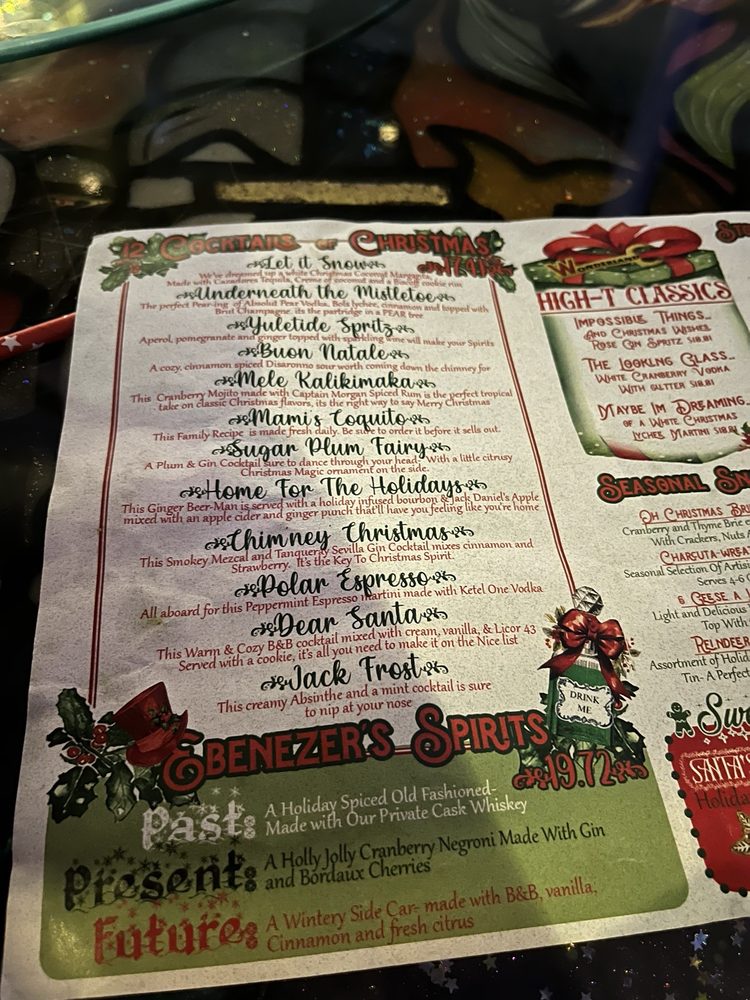 12 Cocktails of Christmas
Let it Snow
We've dreamed up a white Christmas Coconut Margarita,
Made with Cazadores Tequila, Creme of coconut and a Biscoff cookie rim
Underneath the Mistletoe
The perfect Pear-ing of Absolut Pear Vodka, Bols lychee, cinnamon and topped with
Brut Champagne. its the partridge in a PEAR tree
Yuletide Spritz
Aperol, pomegranate and ginger topped with sparkling wine will make your Spirits
Buon Natale
A cozy, cinnamon spiced Disaronno sour worth coming down the chimney for
Mele Kalikimaka
This Cranberry Mojito made with Captain Morgan Spiced Rum is the perfect tropical
take on classic Christmas flavors, its the right way to say Merry Christmas
Mami's Coquito
This Family Recipe is made fresh daily. Be sure to order it before it sells out.
Sugar Plum Fairy
A Plum & Gin Cocktail sure to dance through your head. With a little citrusy
Christmas Magic ornament on the side.
Home For The Holidays
This Ginger Beer-Man is served with a holiday infused bourbon & Jack Daniel's Apple
mixed with an apple cider and ginger punch that'll have you feeling like you're home
Chimney Christmas
This Smokey Mezcal and Tanqueray Sevilla Gin Cocktail mixes cinnamon and
Strawberry. It's the Key To Christmas Spirit.
Polar Espresso
All aboard for this Peppermint Espresso martini made with Ketel One Vodka
Dear Santa
This Warm & Cozy B&B cocktail mixed with cream, vanilla, & Licor 43
Served with a cookie, it's all you need to make it on the Nice list
Jack Frost
This creamy Absinthe and a mint cocktail is sure
to nip at your nose
DRINK
ME
Ebenezer's Spirits
19.72
Past:
A Holiday Spiced Old Fashioned-
Made with Our Private Cask Whiskey
Present:
A Holly Jolly Cranberry Negroni Made With Gin
and Bordaux Cherries
Future:
A Wintery Side Car- made with B&B, vanilla,
Cinnamon and fresh citrus
Wonderland
High-T Classics
Impossible Things...
And Christmas Wishes
Rose Gin Spritz $18.81
The Looking Glass...
White Cranberry Vodka
With Glitter $18.81
Maybe Im Dreaming...
of a White Christmas
Lychee Martini $18.81
St
Seasonal Sn
Oh Christmas Bri
Cranberry and Thyme Brie
With Crackers, Nuts
Charcuta-wrea
Seasonal Selection Of Artis
Serves 4-6
6 Geese A
Light and Delicious
Top With
Reindee
Assortment of Holid
Tin- A Perfect
Sw
Santa's
Holida